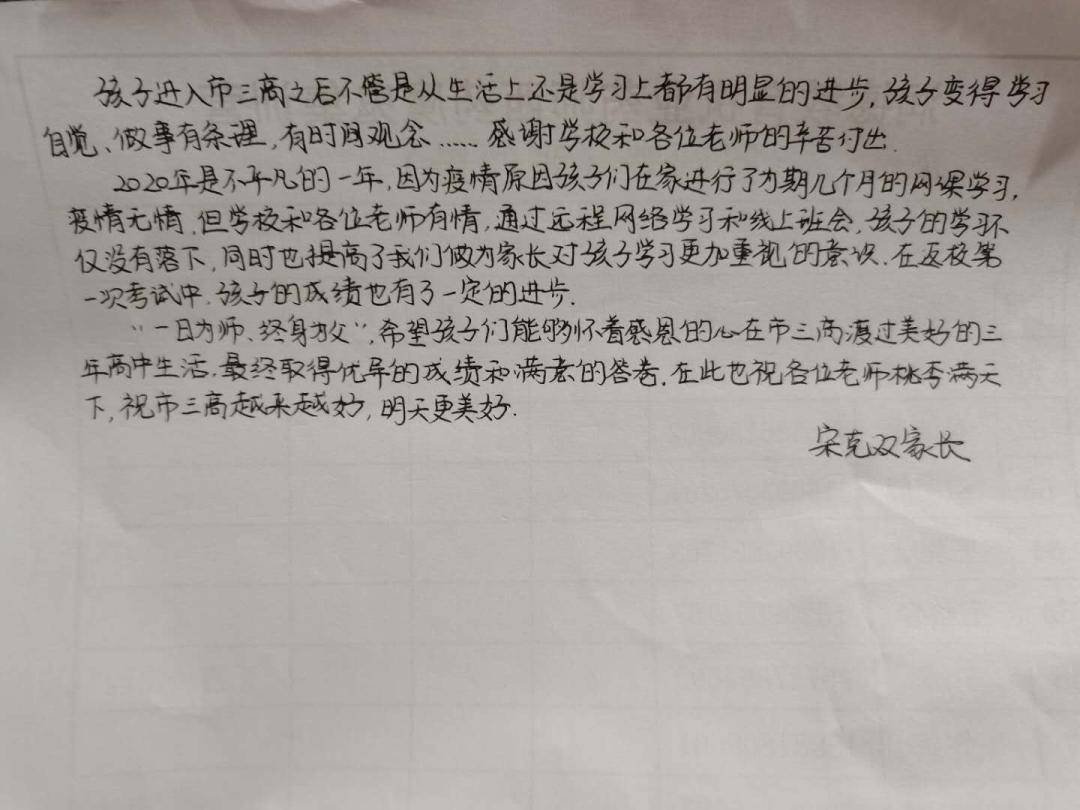 孩子进入市三高之后不管是从生活上还是学习上都有明显的进步,孩子变得学习
自觉、做事有条理,有时间观念……感谢学校和各位老师的辛苦付出.
2020年是不平凡的一年,因为疫情原因孩子们在家进行了为期几个月的网课学习,
疫情无情,但学校和各位老师有情,通过远程网络学习和线上班会,孩子的学习不
仅没有落下,同时也提高了我们做为家长对孩子学习更加重视的意识.在返校第
一次考试中,孩子的成绩也有了一定的进步.
“一日为师、终身为父”,希望孩子们能够怀着感恩的心在市三高渡过美好的三
年高中生活,最终取得优异的成绩和满意的答卷.在此也祝各位老师桃李满天
下,祝市三高越来越好,明天更美好.
宋克双家长